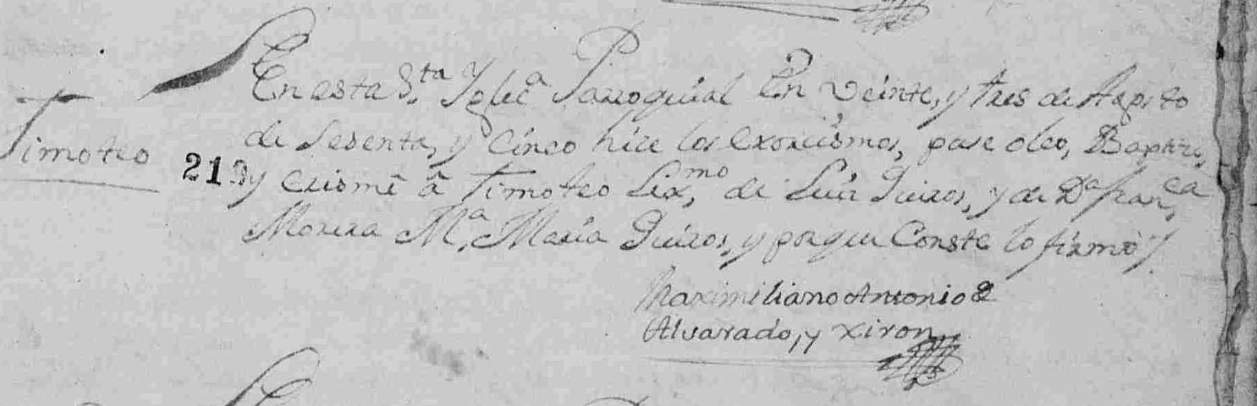 En esta S.ta Yglec.a Parroquial En veinte, y tres de Agosto
Timoteo 219 de Sesenta, y Cinco hice los exorcismos, puse oleo, Baptize,
y Crismê â Timoteo Lex.mo de Luis Quiros, y de D.a Fran.ca
Morera M.a Maria Quiros, y porque Conste lo firmo
Maximiliano Antonio &
Alvarado, y Xiron